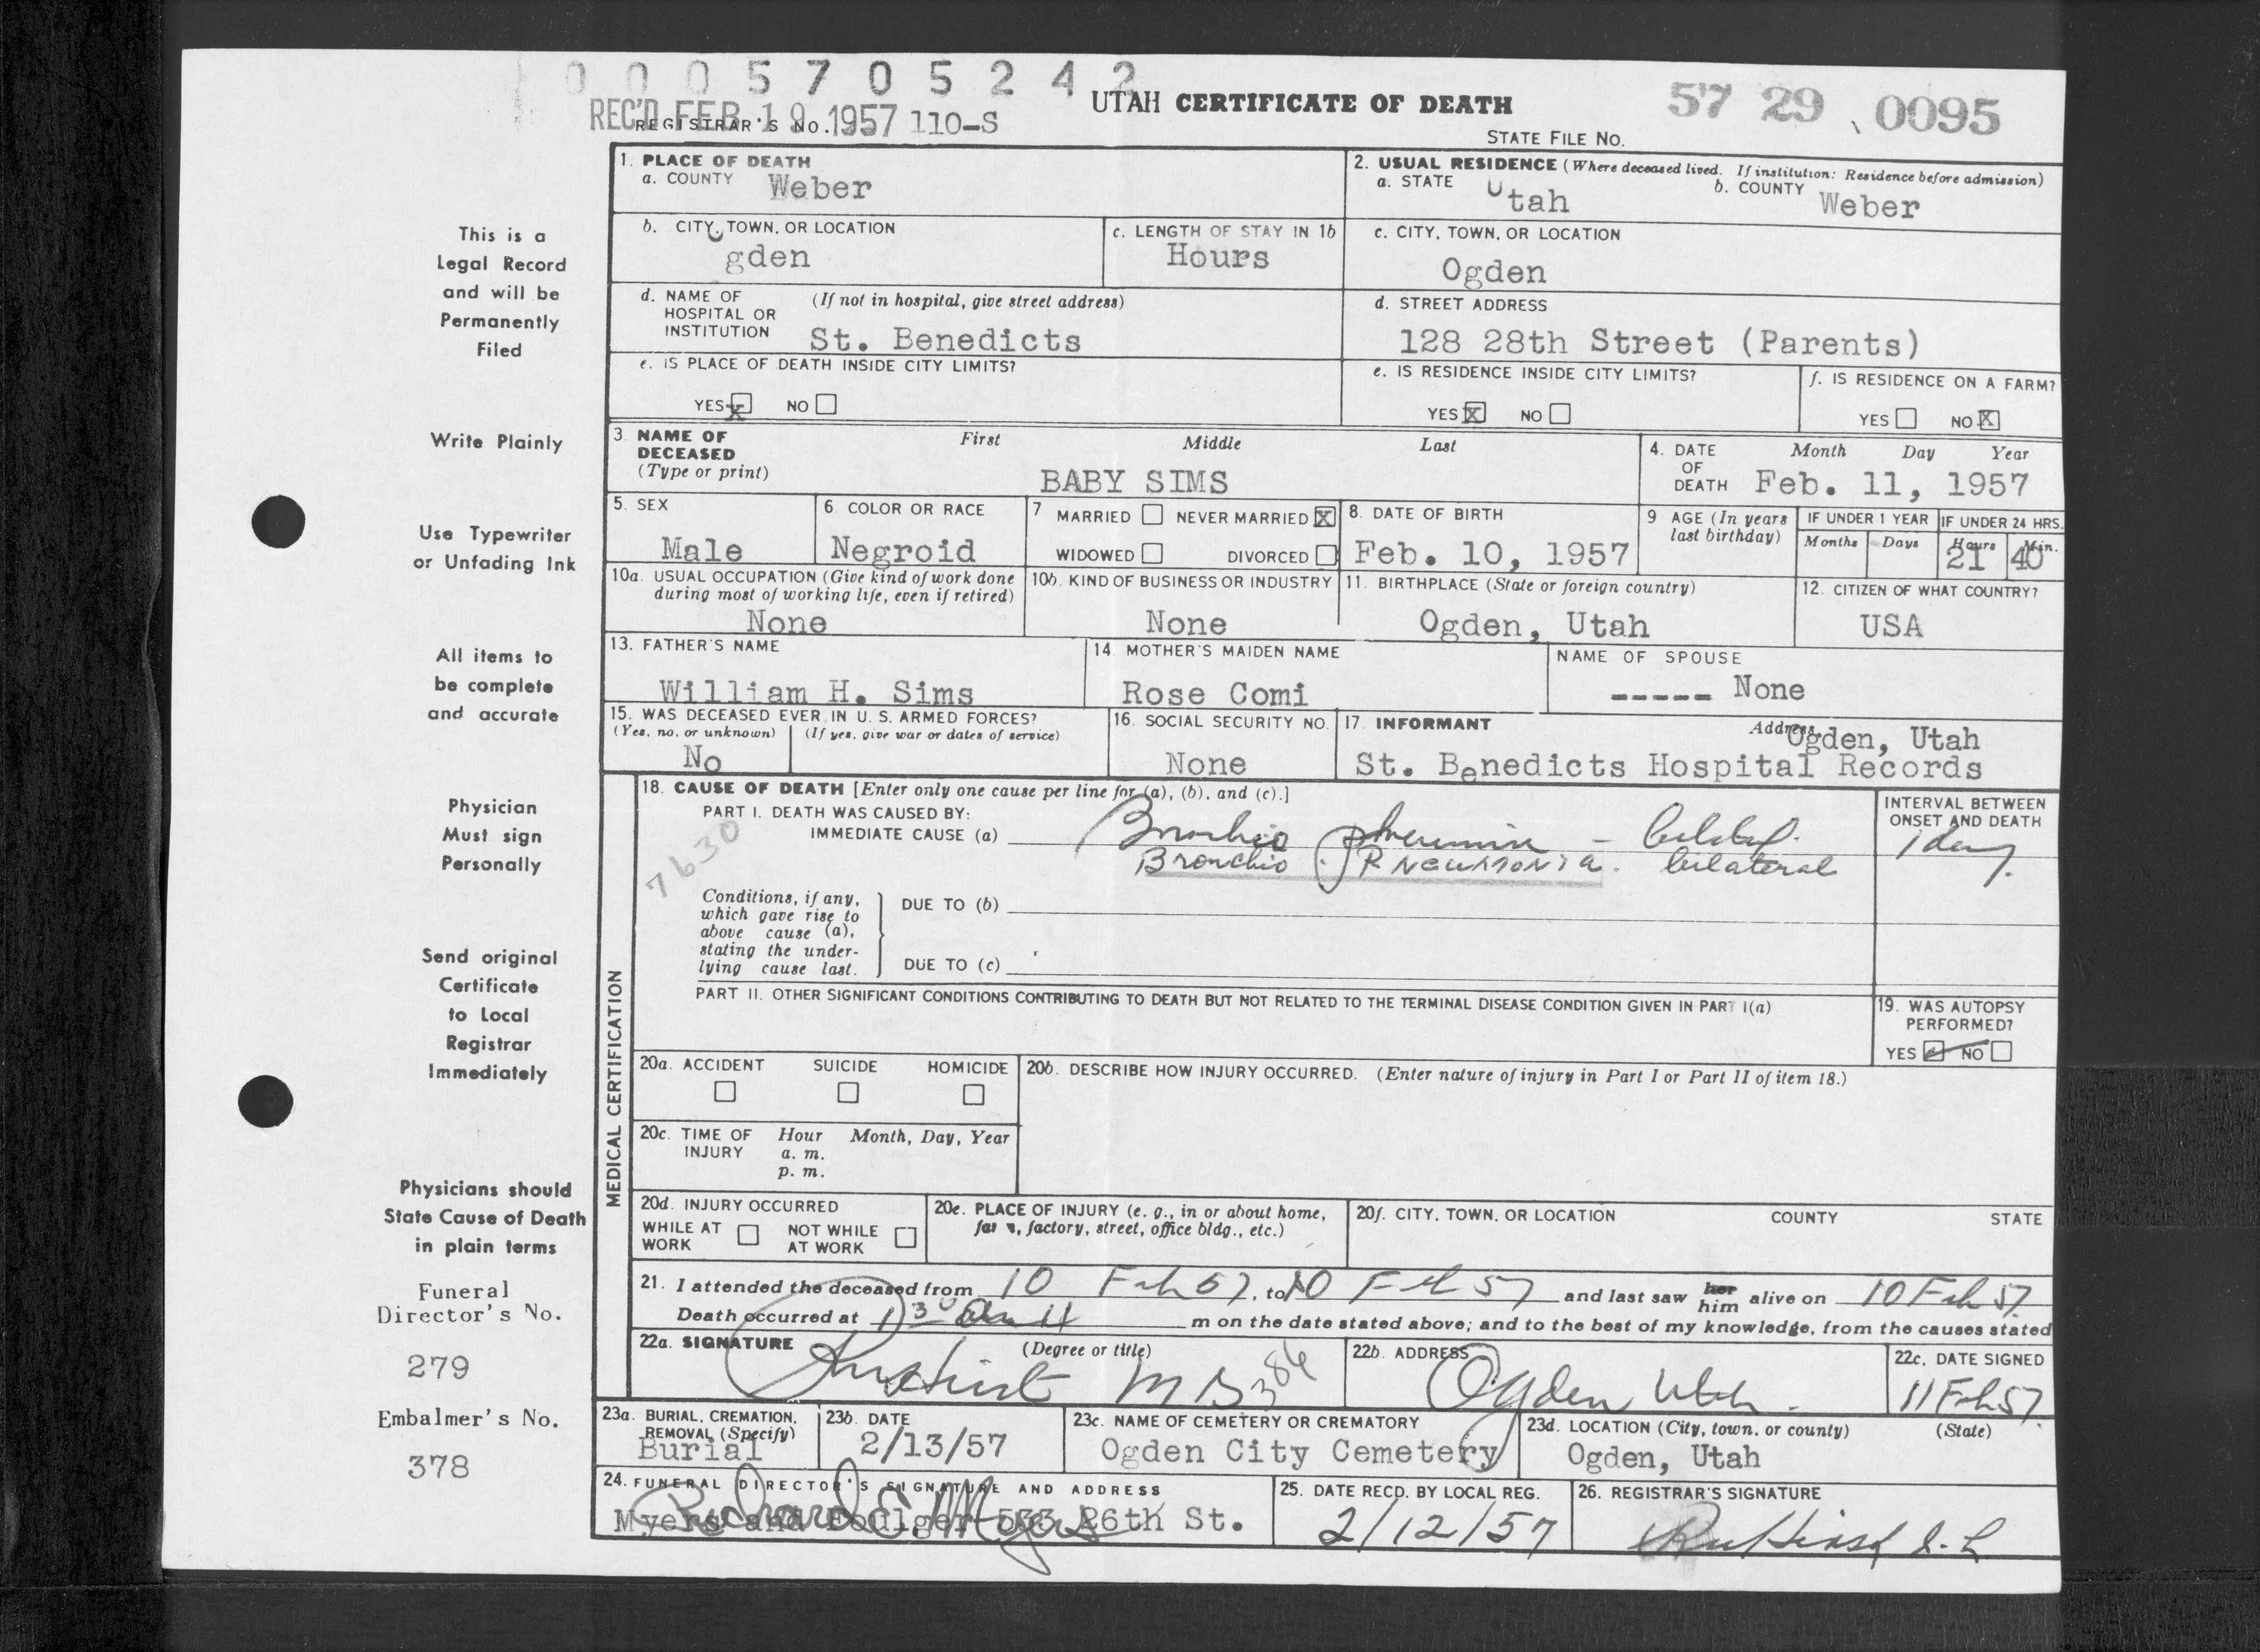 0 0 0 5 7 0 5 2 4 2
REC'D FEB 19 1957
REGISTRAR'S NO. 110-S
UTAH CERTIFICATE OF DEATH
57 29 0095
STATE FILE NO.
1. PLACE OF DEATH
a. COUNTY Weber
2. USUAL RESIDENCE (Where deceased lived. If institution: Residence before admission)
a. STATE Utah b. COUNTY Weber
b. CITY, TOWN, OR LOCATION
Ogden
c. LENGTH OF STAY IN 1b
Hours
c. CITY, TOWN, OR LOCATION
Ogden
d. NAME OF HOSPITAL OR INSTITUTION (If not in hospital, give street address)
St. Benedicts
d. STREET ADDRESS
128 28th Street (Parents)
e. IS PLACE OF DEATH INSIDE CITY LIMITS?
YES X NO
e. IS RESIDENCE INSIDE CITY LIMITS?
YES X NO
f. IS RESIDENCE ON A FARM?
YES NO X
3. NAME OF DECEASED (Type or print)
First Middle Last
BABY SIMS
4. DATE OF DEATH
Month Day Year
Feb. 11, 1957
5. SEX
Male
6. COLOR OR RACE
Negroid
7. MARRIED NEVER MARRIED X
WIDOWED DIVORCED
8. DATE OF BIRTH
Feb. 10, 1957
9 AGE (In years last birthday)
IF UNDER 1 YEAR
Months Days
IF UNDER 24 HRS.
Hours Min.
21 40
10a. USUAL OCCUPATION (Give kind of work done during most of working life, even if retired)
None
10b. KIND OF BUSINESS OR INDUSTRY
None
11. BIRTHPLACE (State or foreign country)
Ogden, Utah
12. CITIZEN OF WHAT COUNTRY?
USA
13. FATHER'S NAME
William H. Sims
14. MOTHER'S MAIDEN NAME
Rose Comi
NAME OF SPOUSE
----- None
15. WAS DECEASED EVER IN U. S. ARMED FORCES?
(Yes, no, or unknown) (If yes, give war or dates of service)
No
16. SOCIAL SECURITY NO.
None
17. INFORMANT Address
Ogden, Utah
St. Benedicts Hospital Records
MEDICAL CERTIFICATION
18. CAUSE OF DEATH [Enter only one cause per line for (a), (b), and (c).]
PART I. DEATH WAS CAUSED BY:
IMMEDIATE CAUSE (a) Broncho pneumonia -
Bronchio Pneumonia. bilateral
7630
INTERVAL BETWEEN ONSET AND DEATH
1 day
Conditions, if any, which gave rise to above cause (a), stating the underlying cause last.
DUE TO (b)
DUE TO (c)
PART II. OTHER SIGNIFICANT CONDITIONS CONTRIBUTING TO DEATH BUT NOT RELATED TO THE TERMINAL DISEASE CONDITION GIVEN IN PART I(a)
19. WAS AUTOPSY PERFORMED?
YES NO
20a. ACCIDENT SUICIDE HOMICIDE
20b. DESCRIBE HOW INJURY OCCURRED. (Enter nature of injury in Part I or Part II of item 18.)
20c. TIME OF INJURY Hour Month, Day, Year
a. m.
p. m.
20d. INJURY OCCURRED
WHILE AT WORK NOT WHILE AT WORK
20e. PLACE OF INJURY (e. g., in or about home, farm, factory, street, office bldg., etc.)
20f. CITY, TOWN, OR LOCATION COUNTY STATE
21. I attended the deceased from 10 Feb 57, to 10 Feb 57 and last saw her him alive on 10 Feb 57.
Death occurred at m on the date stated above; and to the best of my knowledge, from the causes stated
22a. SIGNATURE (Degree or title)
M D 384
22b. ADDRESS
Ogden Utah.
22c. DATE SIGNED
11 Feb 57
23a. BURIAL, CREMATION, REMOVAL (Specify)
Burial
23b. DATE
2/13/57
23c. NAME OF CEMETERY OR CREMATORY
Ogden City Cemetery
23d. LOCATION (City, town, or county) (State)
Ogden, Utah
24. FUNERAL DIRECTOR'S SIGNATURE AND ADDRESS
Richard C. Myers
Myers and Foulger 533 26th St.
25. DATE RECD. BY LOCAL REG.
2/12/57
26. REGISTRAR'S SIGNATURE
This is a
Legal Record
and will be
Permanently
Filed
Write Plainly
Use Typewriter
or Unfading Ink
All items to
be complete
and accurate
Physician
Must sign
Personally
Send original
Certificate
to Local
Registrar
Immediately
Physicians should
State Cause of Death
in plain terms
Funeral
Director's No.
279
Embalmer's No.
378